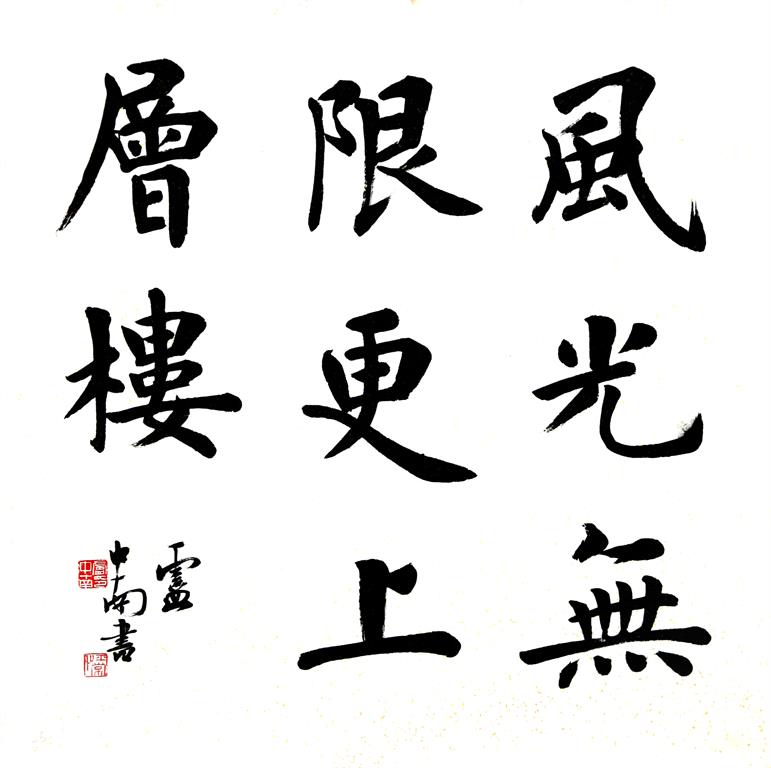 風光無
限更上
層樓
盧
中南書